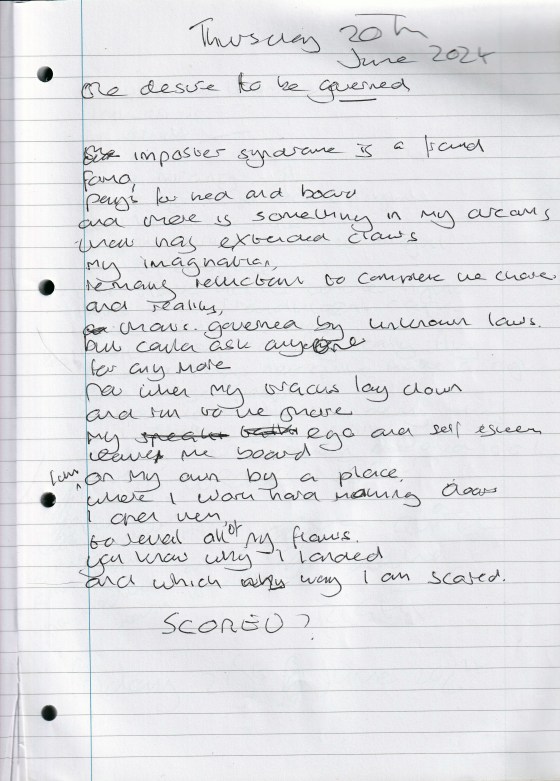 Thursday 20Th
June 2024
The desire to be governed
imposter syndrome is a fraud
pays for and board
and there is something in my dreams
that has extended claws
my imagination,
remains reluctant to complete the chore
and reality,
governed by unknown laws.
but can't ask anyone
for any more
lay down
and run to the shore
my ego and self esteem
leaves me board
I am on my own by a place,
where I work hard making doors
I open them
to reveal all of my flaws.
you know why I landed
and which way I am scared.
SCORED?